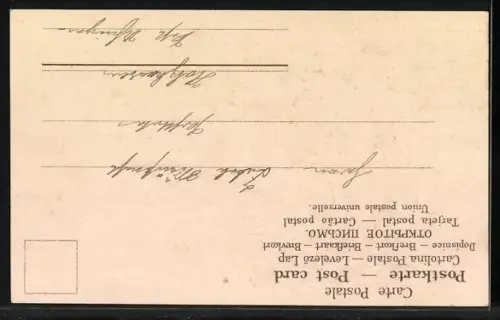 Carte Postale
Postkarte — Post card
Cartolina Postale — Levelező Lap
Dopisnice – Brefkort – Briefkaart – Brevkort
ОТКРЫТОЕ ПИСЬМО.
Tarjeta postal — Cartão postal
Union postale universelle.
Herrn
Holzhausen
Post